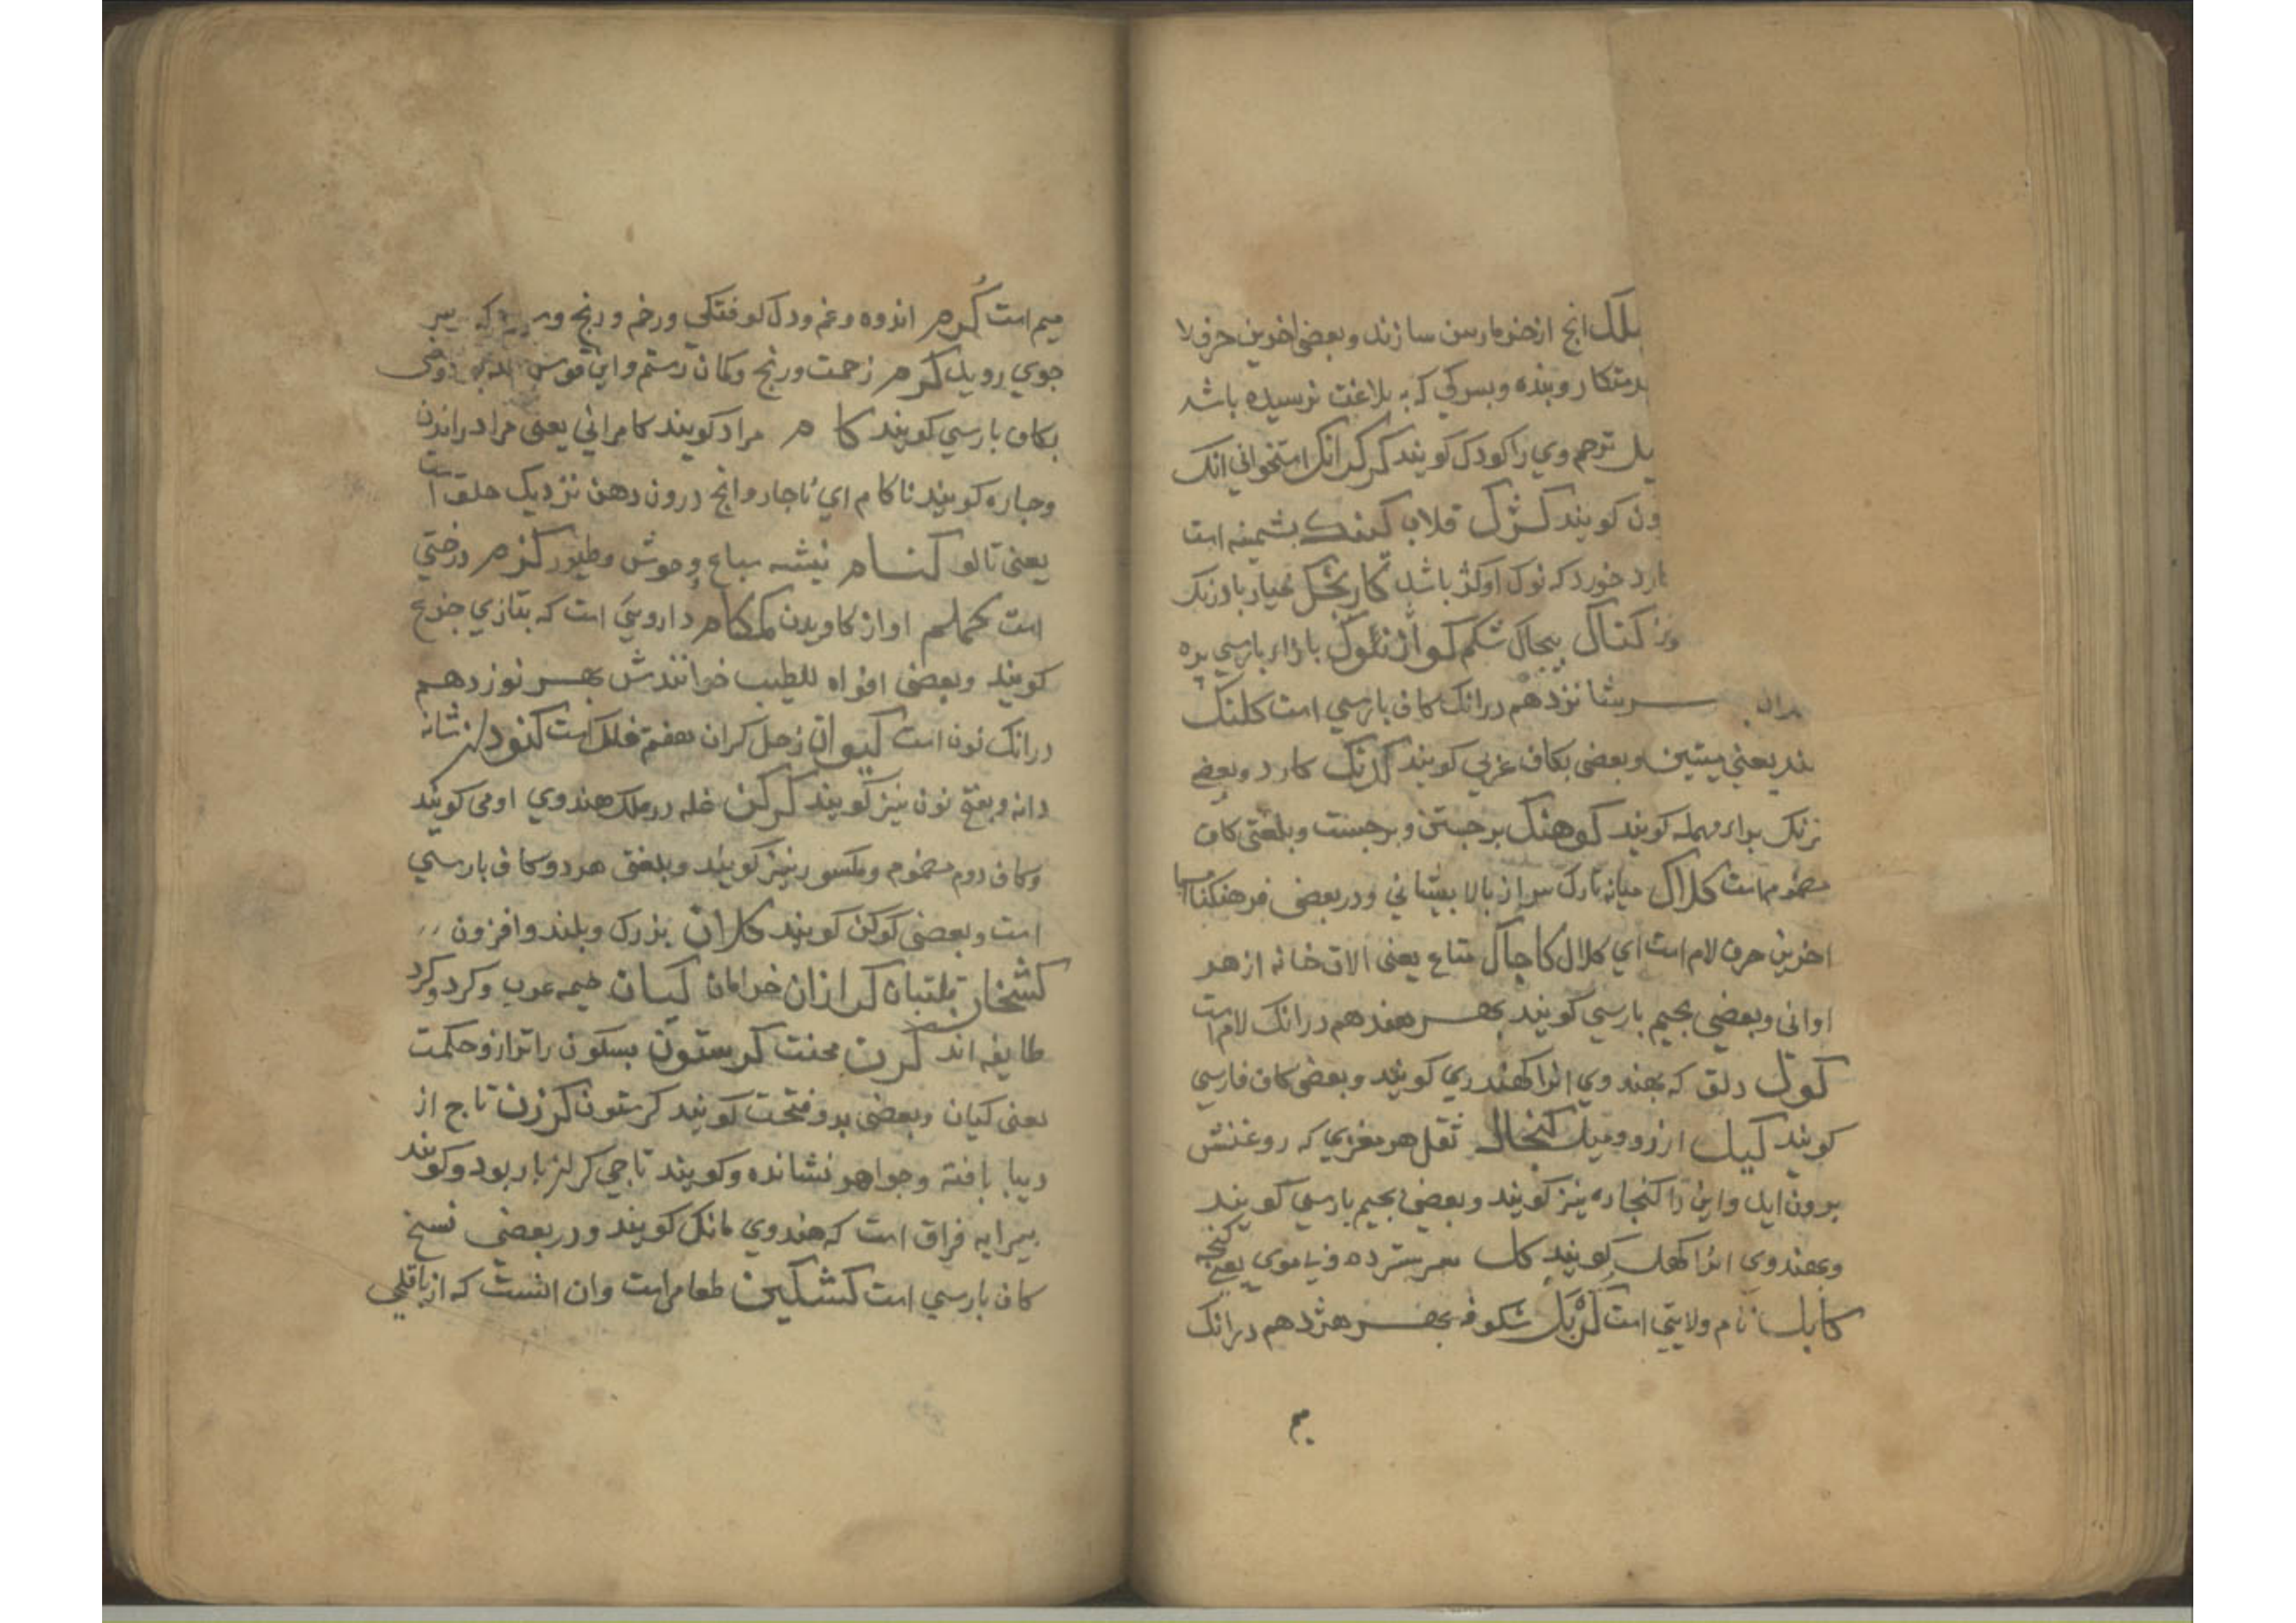 بلک انج ازخوما رسن سازند وبعضی اخرین حرف لا
دمتکار وبنده وبسرکی که به بلاغت نرسیده باشد
ترحم وی را کودک کویند کرکرانک استخوانی انک
ون کویند کژک قلاب کینک بشمینه است
ارد خورد که نوک اوکژ باشد باوزنک
کنال بیجال شکم با زاء بارسی بره
بهر شانزدهم درانک کاف بارسی است کلنک
ند یعنی میتین وبعضی بکاف عربی کویند کزنک کارد وبعضے
نرنک براء مهمله کویند کوهنک برجستن وبرجست وبلغتی کاف
مضموم است کلاک میانه تارک سر از بالا بیشانی ودربعضی فرهنکنامها
اخرین حرف لام است ای کلال کاجال متاع یعنی الات خانه ازهر
اوانی وبعضی بجیم بارسی کویند بهر هفدهم درانک لام است
کول دلق که بهندوی انرا کهندری کویند وبعضی کاف فارسی
کویند کیل ارزو ومیل کنجال ثفل هر مغزی که روغنش
برون اید واین را کنجاره نیز کویند وبعضی بجیم بارسی کویند
وبهندوی انرا کهل کویند کل سر سترده وبی موی یعنے کنجه
کابل نام ولایتی است کژبک شکوفه بهر هژدهم درانک
میم
میم است کرم اندوه وغم ودل کوفتکی ورخم ورنج و
جوی روید کرم زحمت ورنج وکمان رستم واین قوس
بکاف بارسی کویند کام مراد کویند کامرانی یعنی مراد راندن
وجاره کویند ناکام ای ناجار وانج درون دهن نزدیک حلق است
یعنی تالو کنام بیشه سباع وحوش وطیور کزم درختی
است کملم اواز کاویدن کمکام دارویی است که بتازی جزع
کویند وبعضی افواه للطیب خوانندش بهر نوزدهم
درانک نون است کیوان زحل کران هفتم فلک است کنودان شانه
دانه وبفتح نون نیز کویند کرکن غله درملک هندوی اومی کویند
وکاف دوم مضموم ومکسور نیز کویند وبلغتی هردو کاف بارسی
است وبعضی کوکن کویند کلان بزرک وبلند وافزون
کشخان قلتبان کرازان خرامان کیان خیمه عرب وکرد وکرد
طایفه اند کرن محنت کرستون بسکون را ترازو حکمت
یعنی کیان وبعضی برو فتحت کویند کرستون کرزن تاج از
دیبا بافته وجواهر نشانده وکویند تاجی کرانبار بود وکویند
بیرایه فراق است که هندوی مانک کویند ودربعضی نسخ
کاف بارسی است کشکین طعام است وان انست که از باقلی